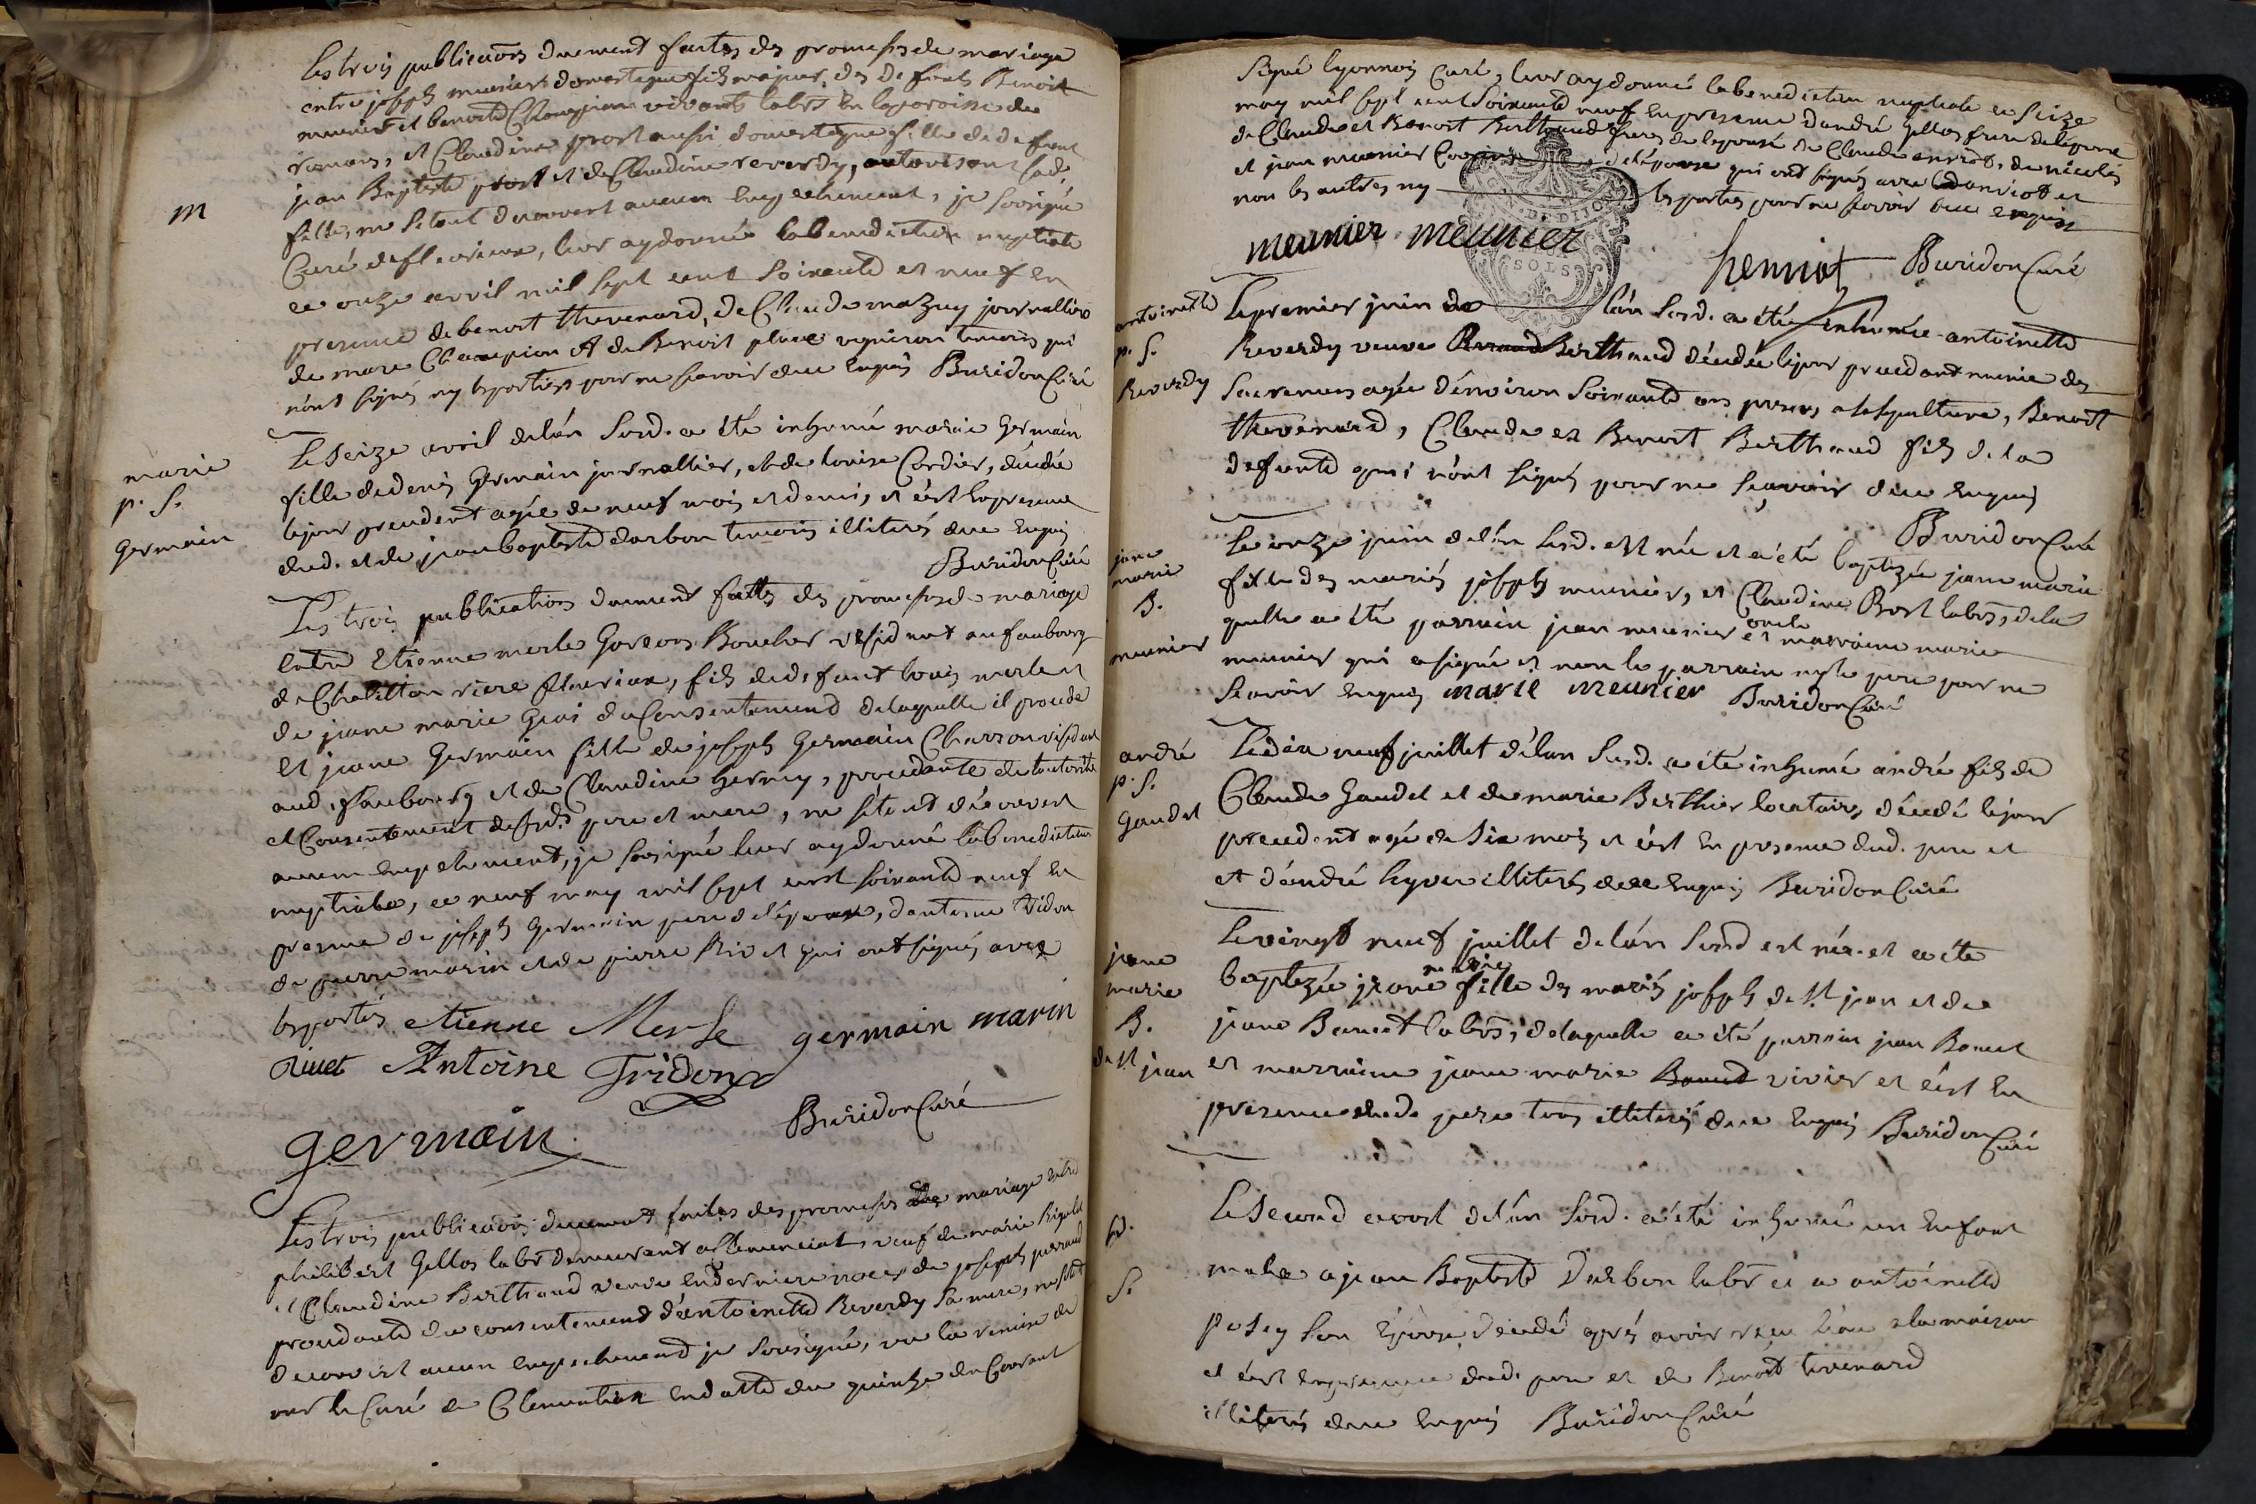 Les trois publications duement faites des promesses de mariage
entre joseph meunier domestique fils majeur des defunts Benoit
meunier et benoite Champion vivants labrs en la paroisse de
romans, et Claudine prost aussi domestique fille de defunt
jean Baptiste prost et de Claudine reverdy, autorisant sad.
m
fille, ne s'etant decouvert aucun empechement, je soussigné
Curé de fleurieux, leur ay donné la benediction nuptiale
ce onze avril mil sept cent soixante et neuf en
presence de benoit thevenard, de Claude mazuy journallier
de marc Champion et de Benoit place vigneron temoins qui
n'ont signés ny les parties pour ne scavoir due enquis Buridon Curé
Le seize avril de l'an susd. a été inhumé marie Germain
marie
p. S.
germain
fille de denis Germain journallier, et de louise Cordier, décédée
le jour precedent agée de neuf mois et demi, et c'est en presence
dud. et de jean baptiste darbon temoins illiterés due enquis
Buridon Curé
Les trois publications duement faittes des promesses de mariage
entre Etienne merle Garcons Boucher resident au faubourg
de Chatillon riere fleurieux, fils de defunt louis merle et
de jeane marie Gras du Consentement de laquelle il procede
et jeane Germain fille de joseph Germain Charron resident
aud. faubourg et de Claudine Gerney, procedante de l'autorité
et Consentement desds. pere et mere, ne s'etant découvert
aucun empechement, je soussigné leur ay donné la benediction
nuptiale, ce neuf may mil sept cent soixante neuf en
presence de joseph germain pere de l'epouse, d'antoine tridon
de pierre marin et de pierre Rivet qui ont signés avec
les parties etienne Merle germain marin
Rivet Antoine Tridon
Buridon Curé
germain
Les trois publications duement faites des promesses de mariage entre
philibert Gellos labr demeurant a Clemenciat, veuf de marie Rigolet
et Claudine Berthaud veuve en derniere noces de joseph perraud
procedante du consentement d'antoinette Reverdy sa mere, ne s'etant
decouvert aucun empechement je soussigné, vu la remise de
mr le Curé de Clementiat en datte du quinze du Courant
signé lyonnois Curé, leur ay donné la benediction nuptiale ce seize
may mil sept cent soixante neuf en presence d'andré Gellos frere de l'epoux
de Claude et Benoit Berthaud freres de l'epouse de Claude enriot, de nicolas
et jean meunier Cousins de l'epouse qui ont signés avec led. enriot et
non les autres ny les parties pour ne scavoir due enquis
meunier meunier
henriot Buridon Curé
antoinette
p. S.
Reverdy
Le premier juin de l'an susd. a été inhumée antoinette
Reverdy veuve Berthaud décedée le jour precedant munie des
sacremens agée d'environ soixante ans presens a la sepulture, Benoit
thevenard, Claude et Benoit Berthaud fils de la
defunte qui n'ont signés pour ne scavoir due enquis
Buridon Curé
jane
marie
B.
meunier
Le onze juin de l'an susd. est née et a été baptizée jane marie
fille des mariés joseph meunier, et Claudine Prost labrs, de la
quelle a été parrain jean meunier oncle et marraine marie
meunier qui a signé et non le parrain ny le pere pour ne
scavoir enquis marie meunier Buridon Curé
andré
p. S.
Gaudet
Le dix neuf juillet de l'an susd. a été inhumé andré fils de
Claude Gaudet et de marie Berthier locataires, décédé le jour
precedent agé de six mois et c'est en presence dud. pere et
et d'andré hyver illiterés due enquis Buridon Curé
jeane
marie
B.
de st jean
Le vingt neuf juillet de l'an susd est née et a été
baptizée jeane marine fille des mariés joseph de st jean et de
jeane Bouvet labrs, de laquelle a été parrain jean Bouvet
et marraine jeane marie vivier et c'est en
presence dud. pere tous illiterés due enquis Buridon Curé
S.
Le second aoust de l'an susd. a été inhumé un enfant
male a jean Baptiste Darbon labr et a antoinette
Pesey son Epouse decedé aprés avoir receu l'eau a la maison
et c'est en presence dud. pere et de Benoit tevenard
illiterés due enquis Buridon Curé